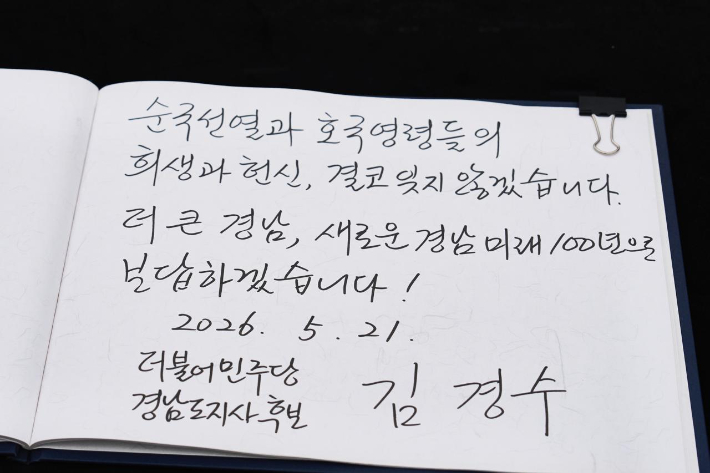 순국선열과 호국영령들의
희생과 헌신, 결코 잊지 않겠습니다.
더 큰 경남, 새로운 경남 미래 100년으로
보답하겠습니다!
2026. 5. 21.
더불어민주당
경남도지사 후보 김 경 수